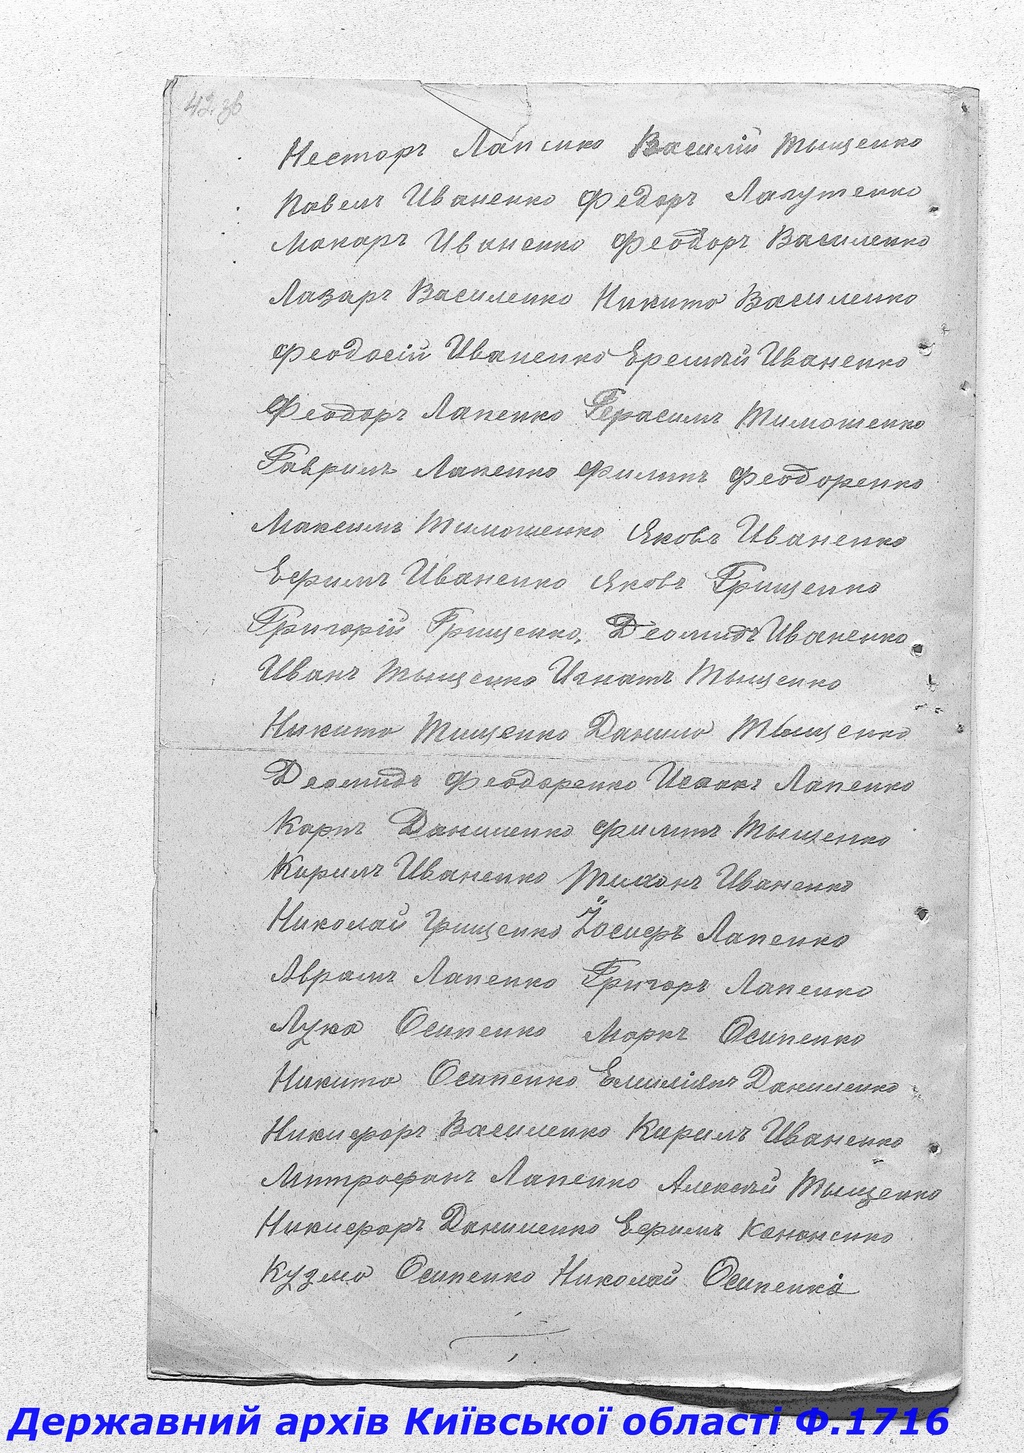 42 зв
Несторъ Лапенко Василій Тыщенко
Павелъ Иваненко Федоръ Лагутенко
Макаръ Иваненко Феодоръ Василенко
Лазарь Василенко Никита Василенко
Феодосій Иваненко Еремѣй Иваненко
Феодоръ Лапенко Герасимъ Тимошенко
Гаврилъ Лапенко Филипъ Феодоренко
Максимъ Тимошенко Яковъ Иваненко
Ефимъ Иваненко Яковъ Грищенко
Григорій Грищенко, Деомидъ Иваненко
Иванъ Тыщенко Игнатъ Тыщенко
Никита Тищенко Данило Тыщенко
Деомидъ Феодоренко Исаакъ Лапенко
Карпъ Даниленко Филипъ Тыщенко
Кирилъ Иваненко Тихонъ Иваненко
Николай Грищенко Іосифъ Лапенко
Аврамъ Лапенко Григоръ Лапенко
Лука Осипенко Маркъ Осипенко
Никита Осипенко Емиліянъ Даниленко
Никифоръ Василенко Кирилъ Иваненко
Митрофанъ Лапенко Алексѣй Тыщенко
Никифоръ Даниленко Ефимъ Кононенко
Кузма Осипенко Николай Осипенко
Державний архів Київської області Ф.1716